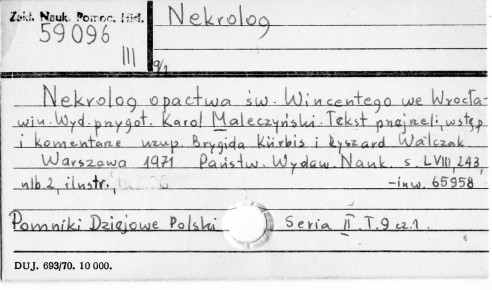 Zakł. Nauk. Pomoc. Hist.
59096
III
Nekrolog
9/1
Nekrolog opactwa św. Wincentego we Wrocła-
wiu. Wyd. przygot. Karol Maleczyński. Tekst przejrzeli, wstęp
i komentarz uzup. Brygida Kürbis i Ryszard Walczak.
Warszawa 1971 Państw. Wydaw. Nauk. s. LVIII, 243,
nlb. 2, ilustr.,
– inw. 65958
Pomniki Dziejowe Polski Seria II. T. 9 cz. 1.
DUJ. 693/70. 10 000.